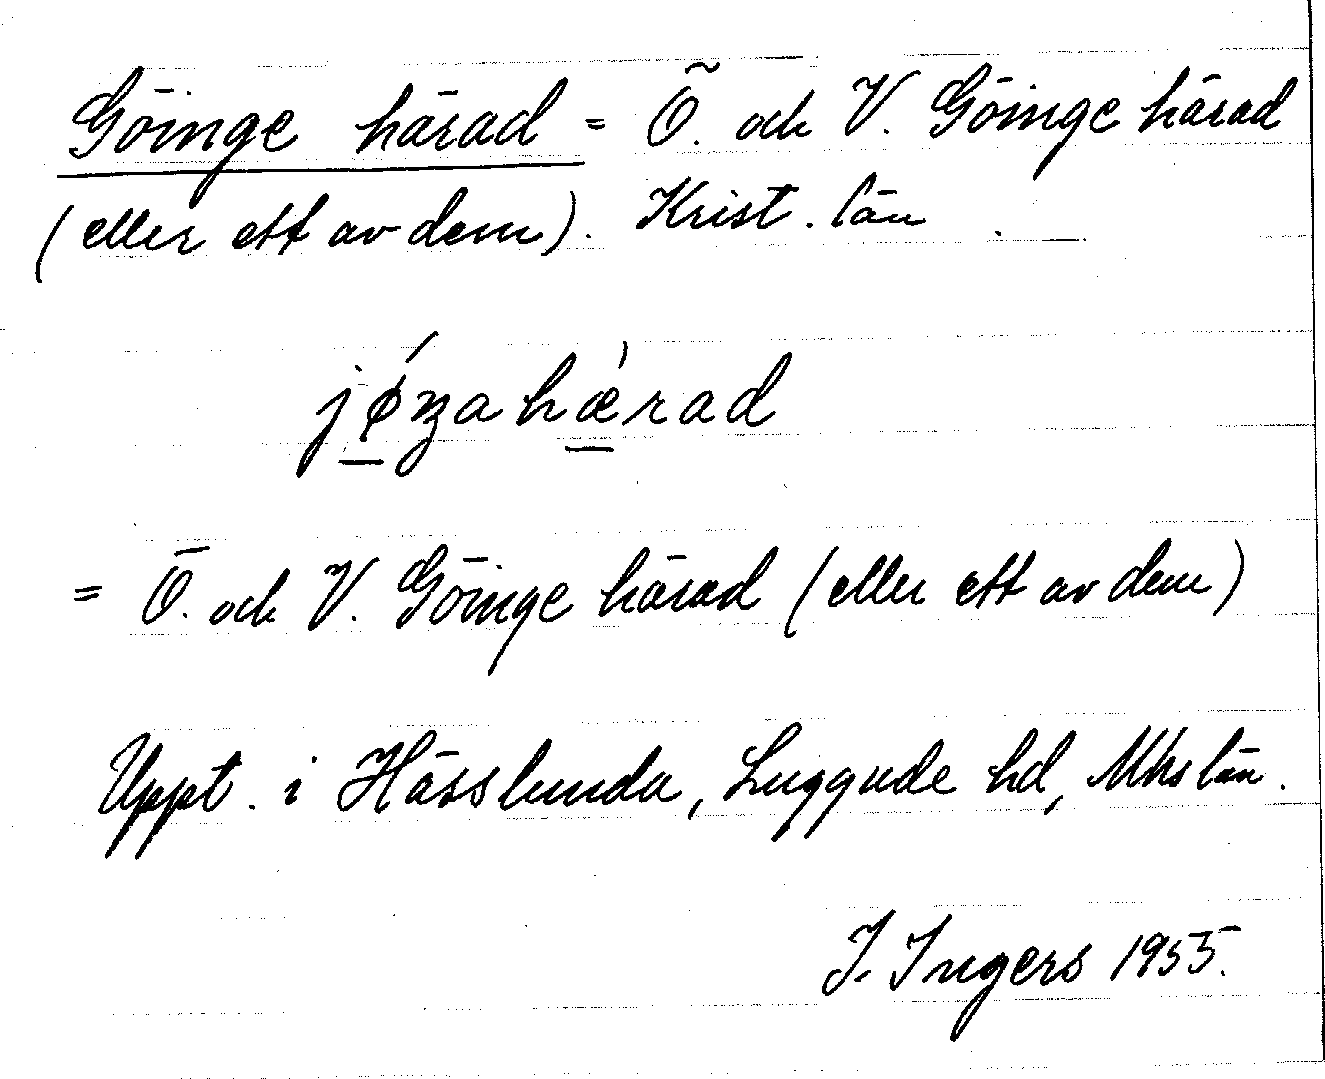 Göinge härad = Ö. och V. Göinge härad
(eller ett av dem). Krist. län.
jǿŋahǽrad
= Ö. och V. Göinge härad (eller ett av dem)
Uppt. i Hässlunda, Luggude hd, Mhs län.
I. Ingers 1955.